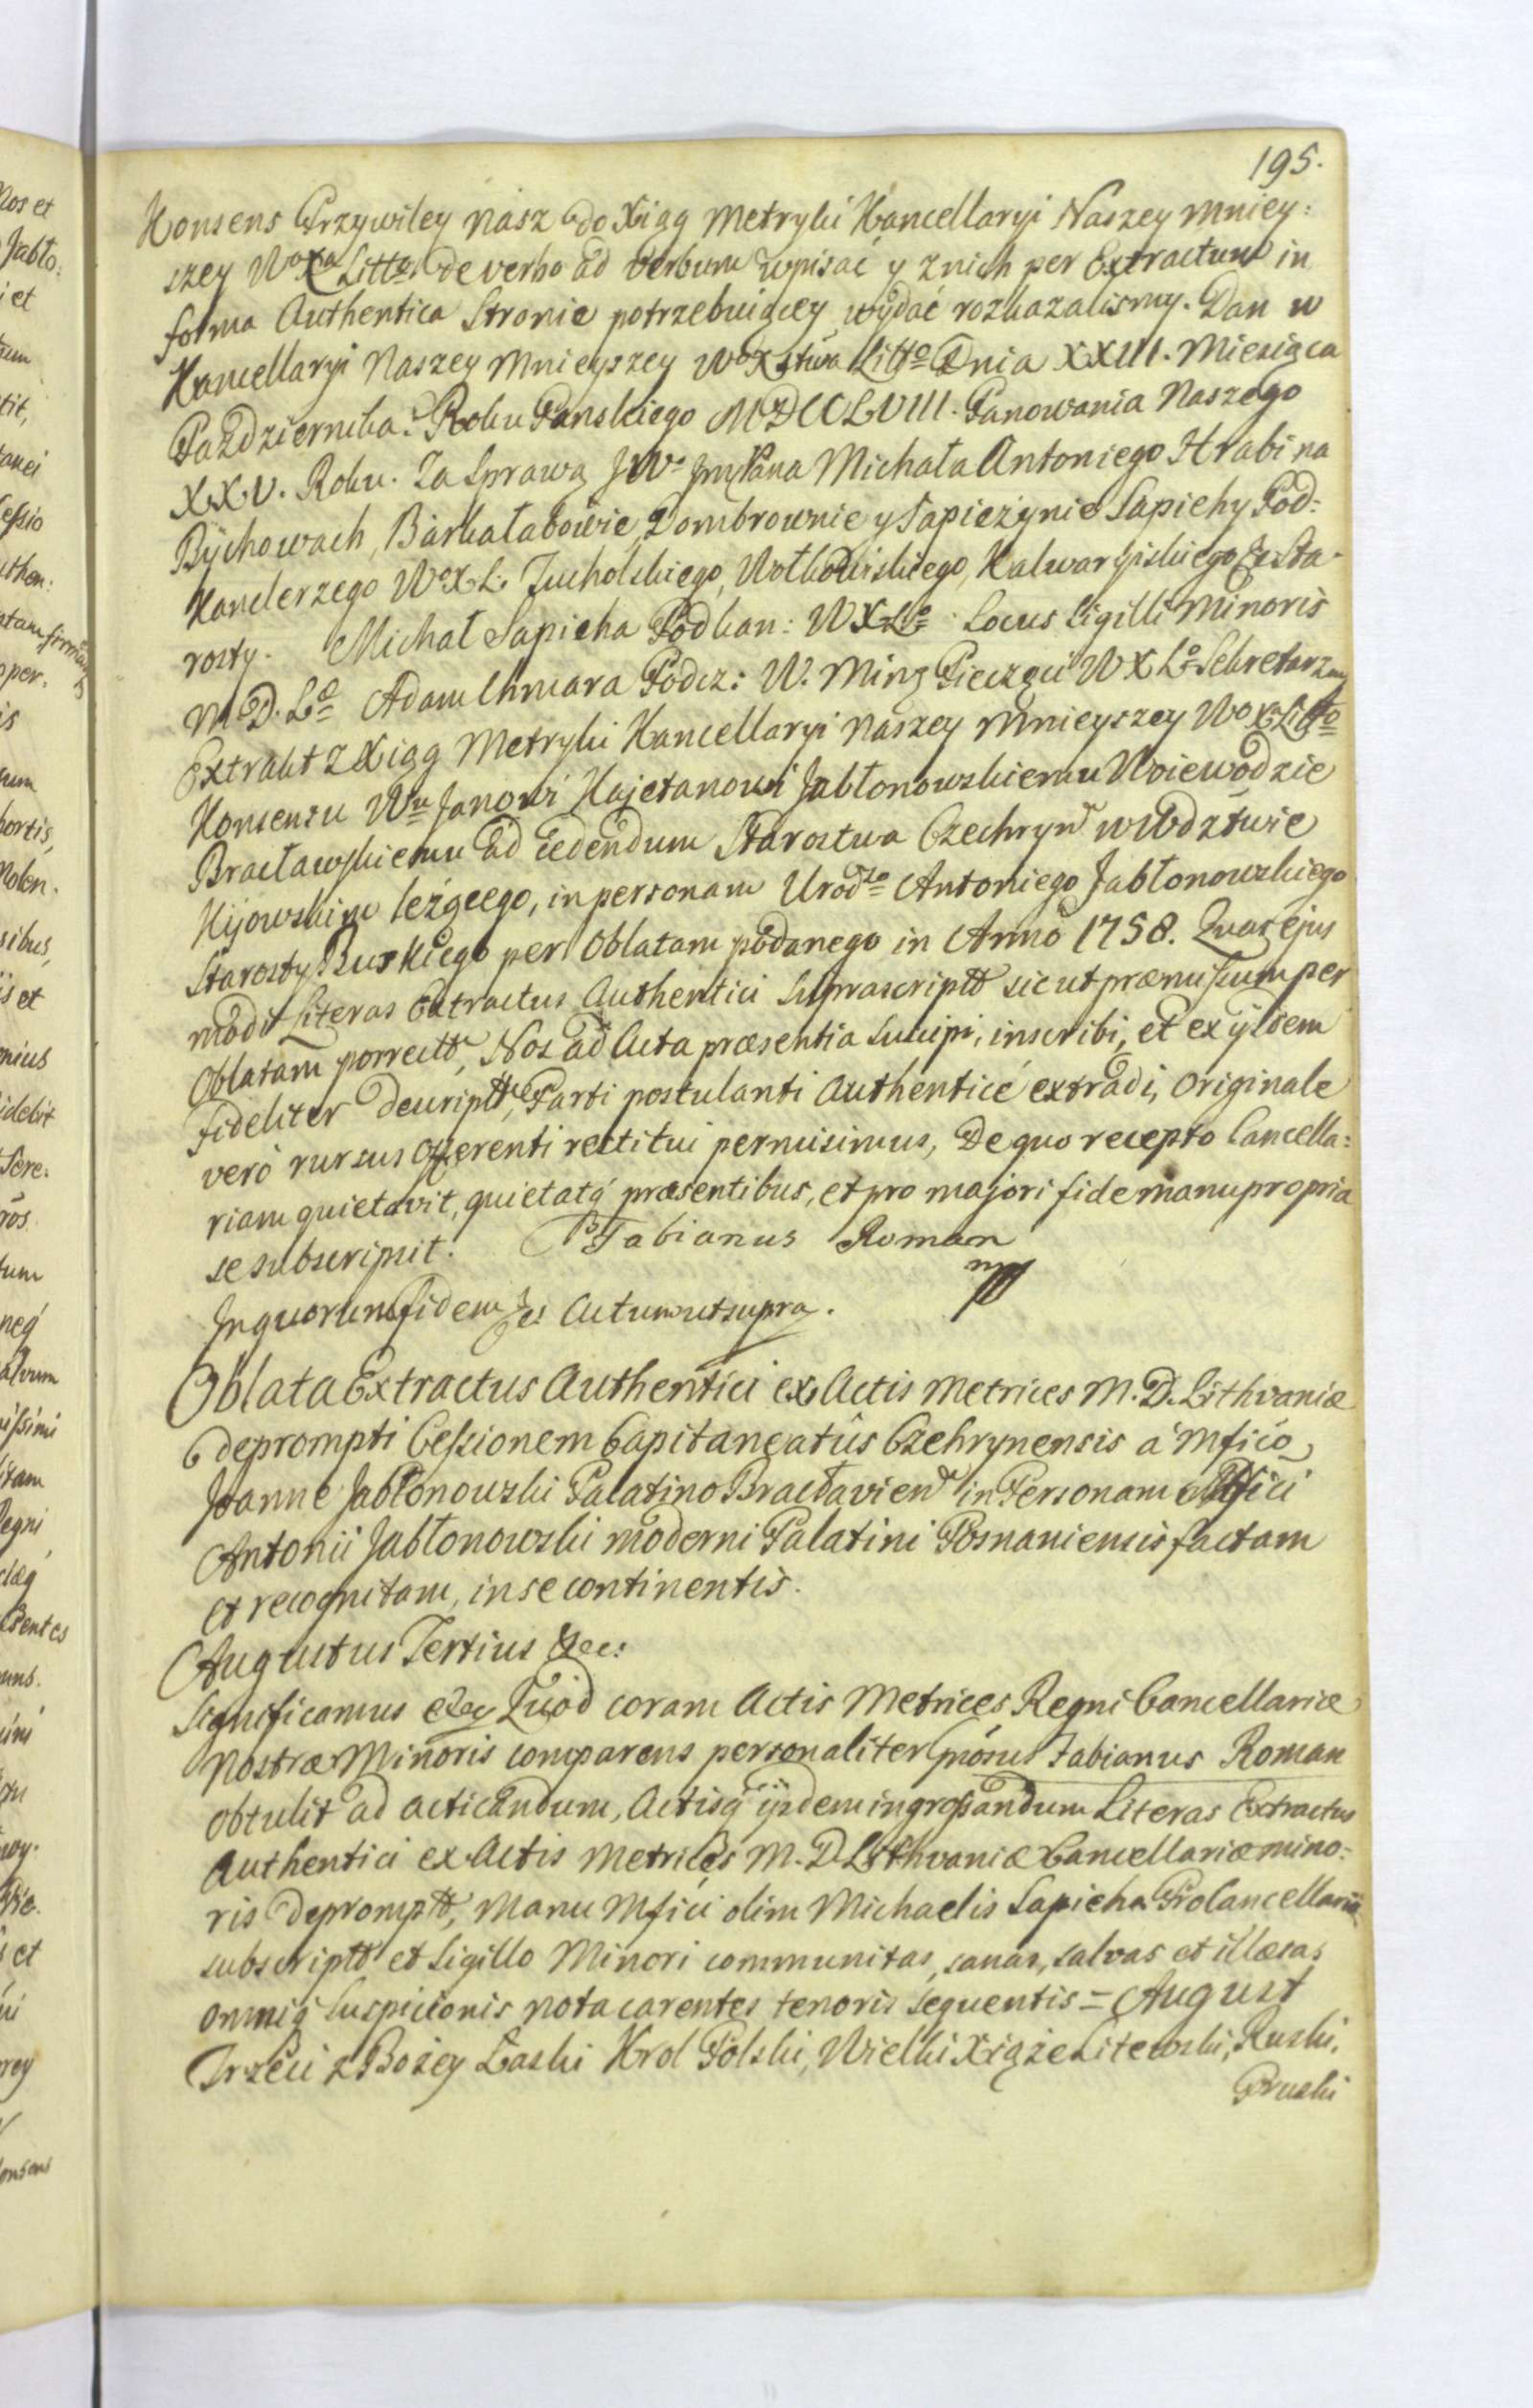 195.
Konsens Przywiley nasz do Xiąg Metryki Kancellaryi Naszey Mniey:
szey WoXa Litto de verbo ad verbum wpisać y znich per Extractum in
forma Authentica Stronie potrzebuiącey wydać rozkazalismy. Dan w
Kancellaryi Naszey Mnieyszey WoXstwa Litto Dnia XXIII. Miesiąca
Pazdziernika. Roku Panskiego MDCCLVIII. Panowania Naszego
XXV. Roku. Za Sprawą JWo JmPana Michała Antoniego Hrabi na
Bychowach, Barkałabowie, Dombrownie y Sapieżynie Sapiehy Pod:
Kanclerzego WoXL. Tucholskiego, Wołkowiskiego, Kalwaryiskiego &c Sta-
rosty. Michał Sapieha Podkan: WXLo Locus Sigilli Minoris
M.D.Lo Adam Chmara Podcz: W. Ming Pieczęci WXLo Sekretarz mp
Extrakt z Xiąg Metryki Kancellaryi Naszey Mnieyszey WoXa Litto
Konsensu Wu Janowi Kajetanowi Jabłonowskiemu Woiewodzie
Bracławskiemu ad cedendum Starostwa Czechryn wWdztwie
Kijowskim leżącego, in personam Urodzo Antoniego Jabłonowskiego
Starosty Buskiego per Oblatam podanego in Anno 1758. Quas ejus
modi Literas Extractus Authentici Suprascriptt sicut præmissum per
Oblatam porrectt, Nos ad Acta præsentia Suscipi, inscribi, et ex ijsdem
fideliter descriptt, Parti postulanti Authenticé extradi, Originale
veró rursus Offerenti restitui permisimus, De quo recepto Cancella:
riam quietavit, quietatq́ præsentibus, et pro majori fide manu propria
se subscripsit. Fabianus Roman
mp
In quorum fidem &c Actum ut supra.
Oblata Extractus Authentici ex Actis Metrices M. D. Lithvaniæ
deprompti Cessionem Capitaneatûs Czehrynensis á Mfico
Joanne Jabłonowski Palatino Bracłavien in Personam Mfici
Antonii Jabłonowski moderni Palatini Posnaniensis factam
et recognitam, in se continentis.
Augustus Tertius &ec:
Significamus &c Quod coram Actis Metrices Regni Cancellariæ
Nostræ Minoris comparens personaliter Gnósus Fabianus Roman
obtulit ad acticandum, Actisq́ ijsdem ingrossandum Literas Extractus
Authentici ex Actis Metrices M. D. Lithvaniæ Cancellariæ mino:
ris depromptt, Manu Mfici olim Michaelis Sapieha ProCancellarii
subscriptt et Sigillo Minori communitas, sanas, salvas et illæsas
omniq́ Suspicionis nota carentes tenoris sequentis = August
Trzeci z Bożey Łaski Krol Polski, Wielki Xiąże Litewski, Ruski,
Pruski